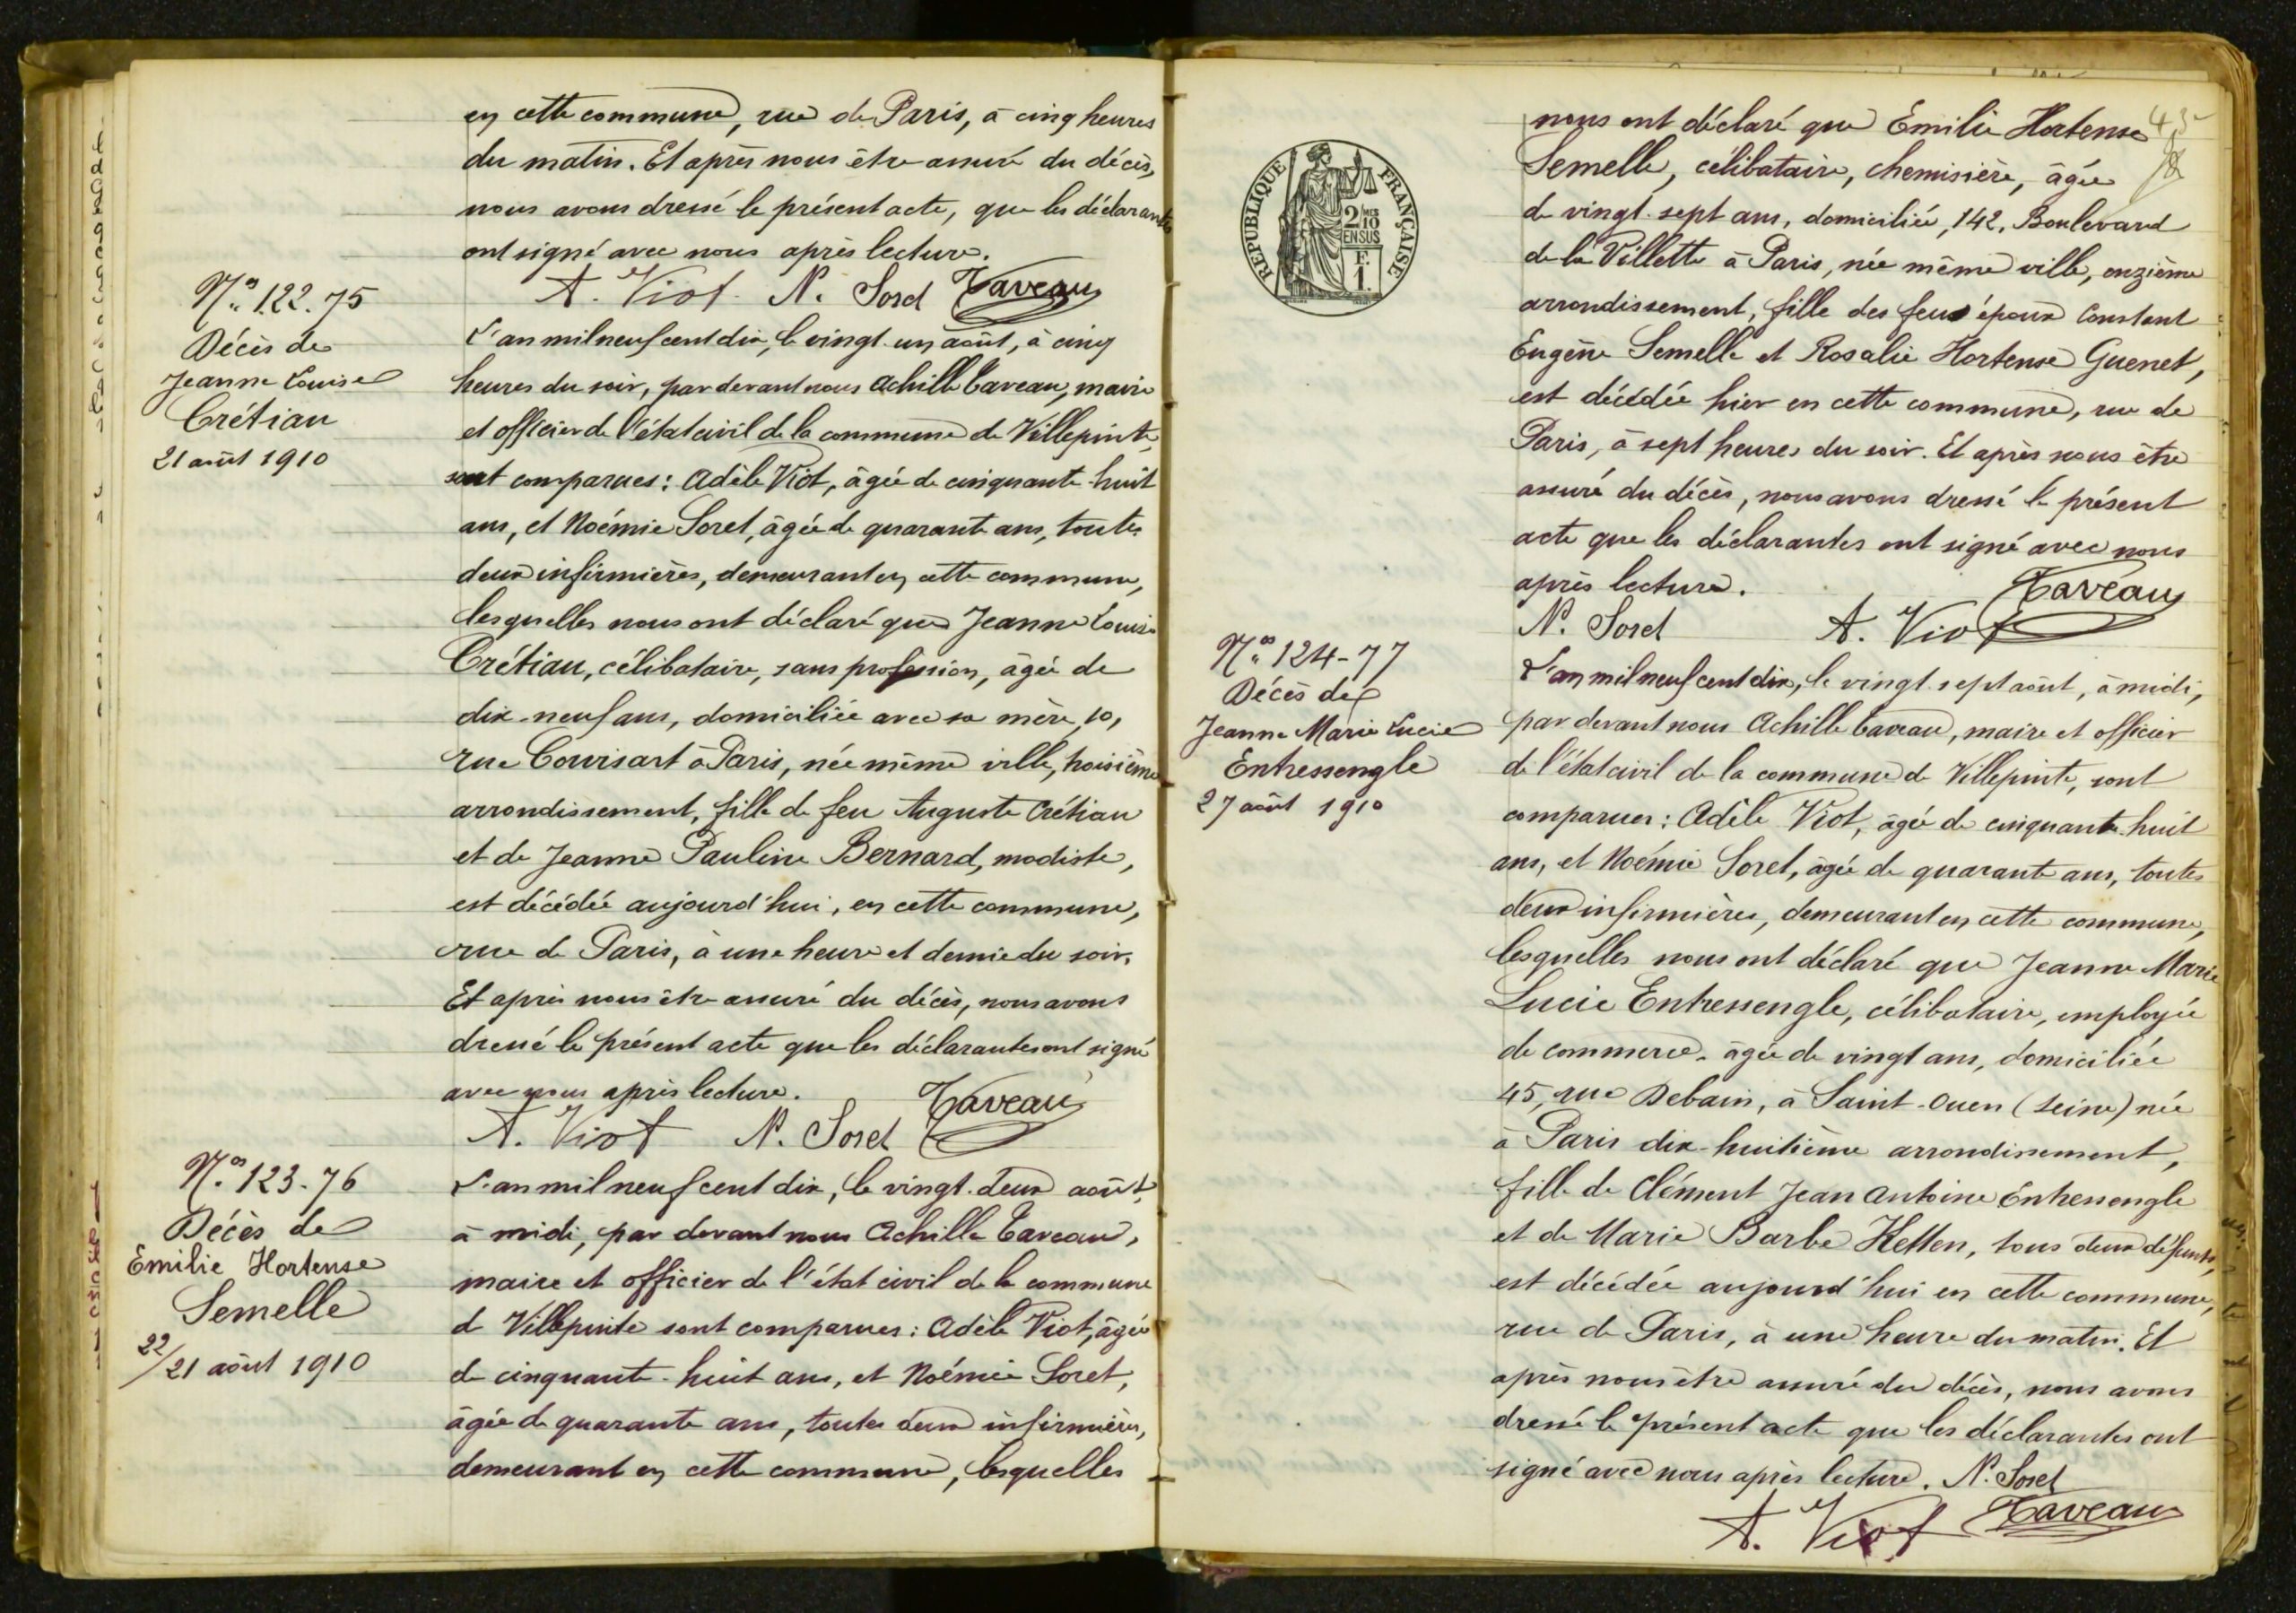 en cette commune, rue de Paris, à cinq heures
du matin. Et après nous être assuré du décès,
nous avons dressé le présent acte, que les déclarants
ont signé avec nous après lecture.
A. Viot. N. Soret Taveau
Nos 122.75
Décès de
Jeanne Louise
Crétiau
21 août 1910
L'an mil neuf cent dix, le vingt-un août, à cinq
heures du soir, par devant nous Achille Taveau, maire
et officier de l'état civil de la commune de Villepinte,
sont comparues : Adèle Viot, âgée de cinquante-huit
ans, et Noémie Soret, âgée de quarante ans, toutes
deux infirmières, demeurant en cette commune,
lesquelles nous ont déclaré que Jeanne Louise
Crétiau, célibataire, sans profession, âgée de
dix-neuf ans, domiciliée avec sa mère, 10,
rue Corvisart à Paris, née même ville, troisième
arrondissement, fille de feu Auguste Crétiau
et de Jeanne Pauline Bernard, modiste,
est décédée aujourd'hui, en cette commune,
rue de Paris, à une heure et demie du soir.
Et après nous être assuré du décès, nous avons
dressé le présent acte que les déclarantes ont signé
avec nous après lecture. Taveau
A. Viot N. Soret
Nos 123-76
Décès de
Emilie Hortense
Semelle
22/21 août 1910
L'an mil neuf cent dix, le vingt-deux août,
à midi, par devant nous Achille Taveau,
maire et officier de l'état civil de la commune
de Villepinte sont comparues : Adèle Viot, âgée
de cinquante-huit ans, et Noémie Soret,
âgée de quarante ans, toutes deux infirmières,
demeurant en cette commune, lesquelles
45
RÉPUBLIQUE FRANÇAISE
2/10MES
EN SUS
1F.
nous ont déclaré que Emilie Hortense
Semelle, célibataire, chemisière, âgée
de vingt-sept ans, domiciliée, 142, Boulevard
de la Villette à Paris, née même ville, onzième
arrondissement, fille des feus époux Constant
Eugène Semelle et Rosalie Hortense Guenet,
est décédée hier en cette commune, rue de
Paris, à sept heures du soir. Et après nous être
assuré du décès, nous avons dressé le présent
acte que les déclarantes ont signé avec nous
après lecture. Taveau
N. Soret A. Viot
Nos 124-77
Décès de
Jeanne Marie Lucie
Entressengle
27 août 1910
L'an mil neuf cent dix, le vingt-sept août, à midi,
par devant nous Achille Taveau, maire et officier
de l'état civil de la commune de Villepinte, sont
comparues : Adèle Viot, âgée de cinquante-huit
ans, et Noémie Soret, âgée de quarante ans, toutes
deux infirmières, demeurant en cette commune,
lesquelles nous ont déclaré que Jeanne Marie
Lucie Entressengle, célibataire, employée
de commerce, âgée de vingt ans, domiciliée
45, rue Debain, à Saint-Ouen (Seine) née
à Paris dix-huitième arrondissement,
fille de Clément Jean Antoine Entressengle
et de Marie Barbe Hetten, tous deux défunts,
est décédée aujourd'hui en cette commune,
rue de Paris, à une heure du matin. Et
après nous être assuré du décès, nous avons
dressé le présent acte que les déclarantes ont
signé avec nous après lecture. N. Soret
A. Viot Taveau